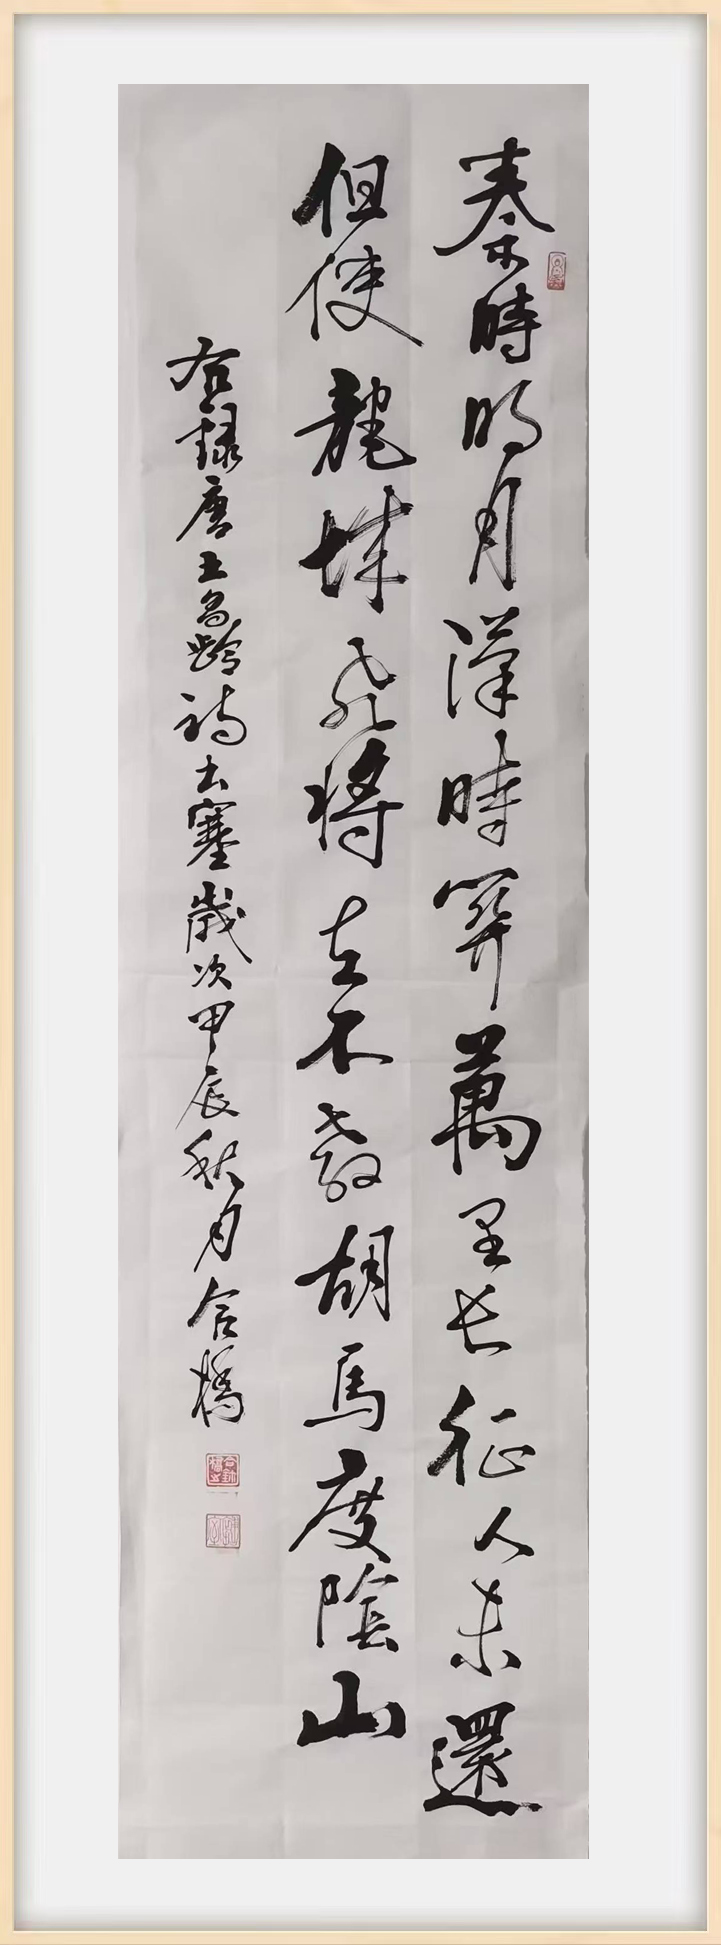 秦時明月漢時關萬里長征人未還
但使龍城飛將在不教胡馬度陰山
右録唐王昌齡詩出塞歲次甲辰秋月合橋